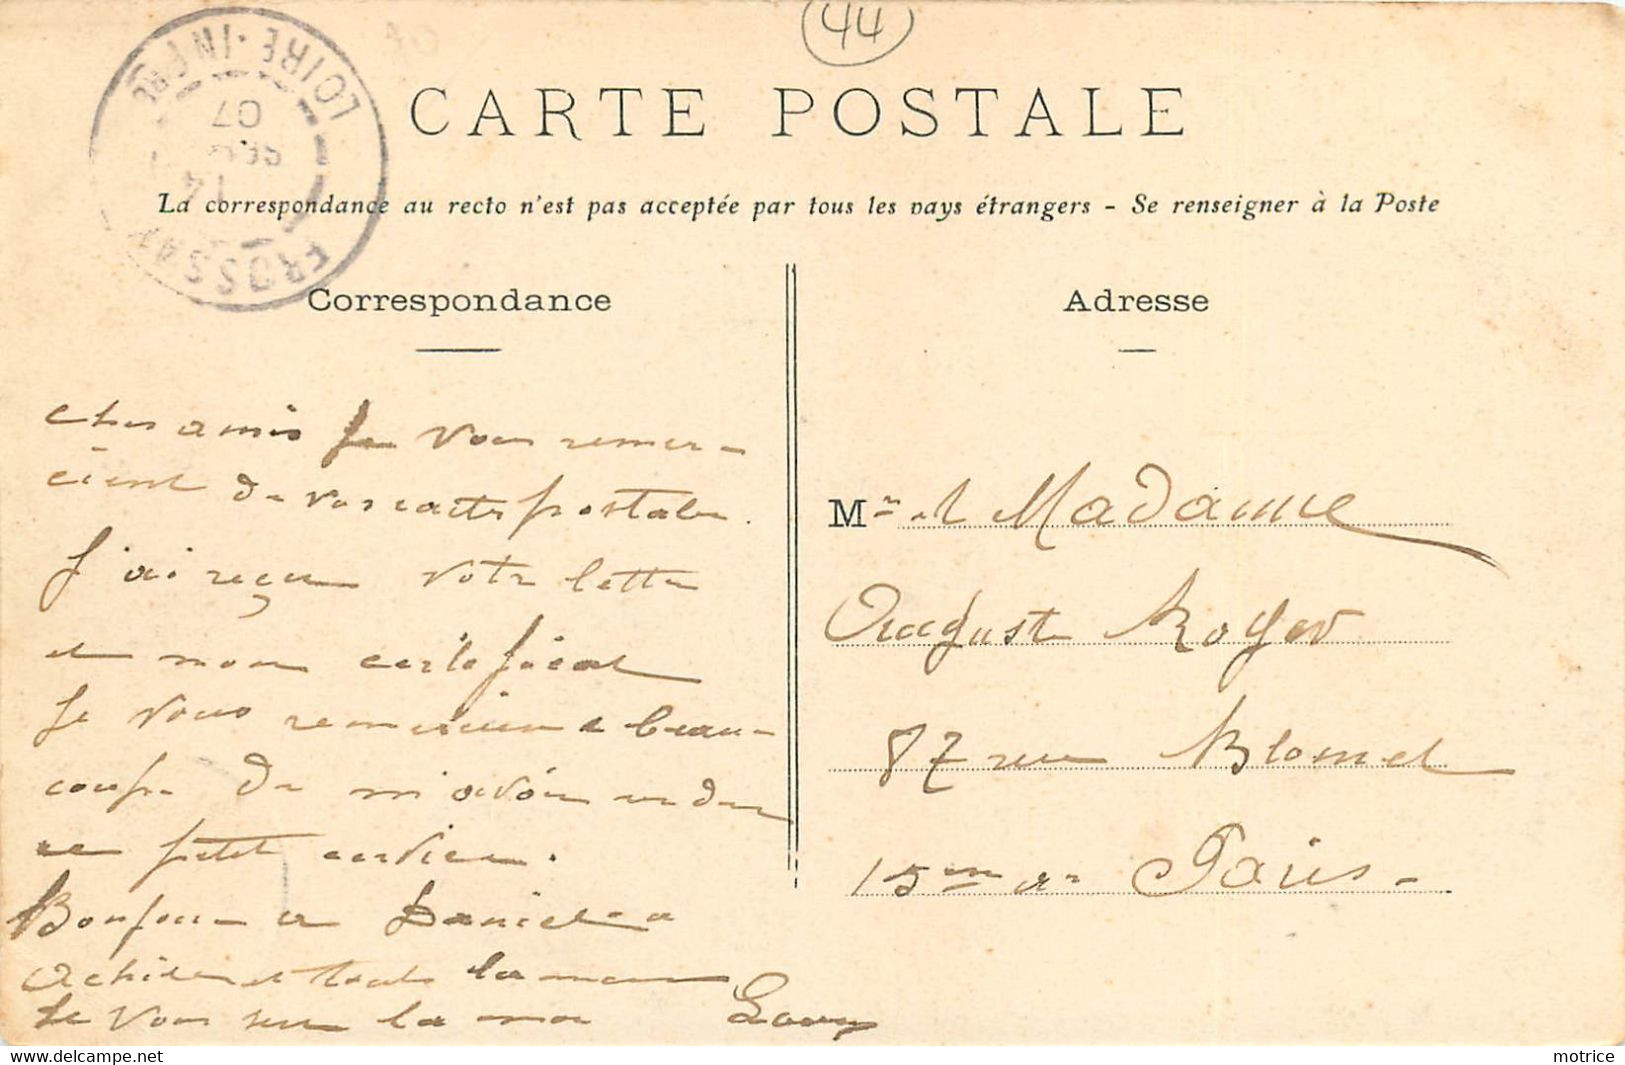 44
LOIRE-INFRE
14
SEPT
07
FROSSAY
CARTE POSTALE
La correspondance au recto n'est pas acceptée par tous les pays étrangers - Se renseigner à la Poste
Correspondance
Adresse
Cher amis Je vous remer-
cient de vos cartes postales.
J'ai reçu votre lettre
et mon certificat
Je vous remercien beau-
coup de m'avoir rendu
ce petit cervice.
Bonjour a Daniel a
Achile et toute la
Je vous sere la
Mr et Madame
Auguste Royer
87 rue Blomet
15me ar Paris.
motrice